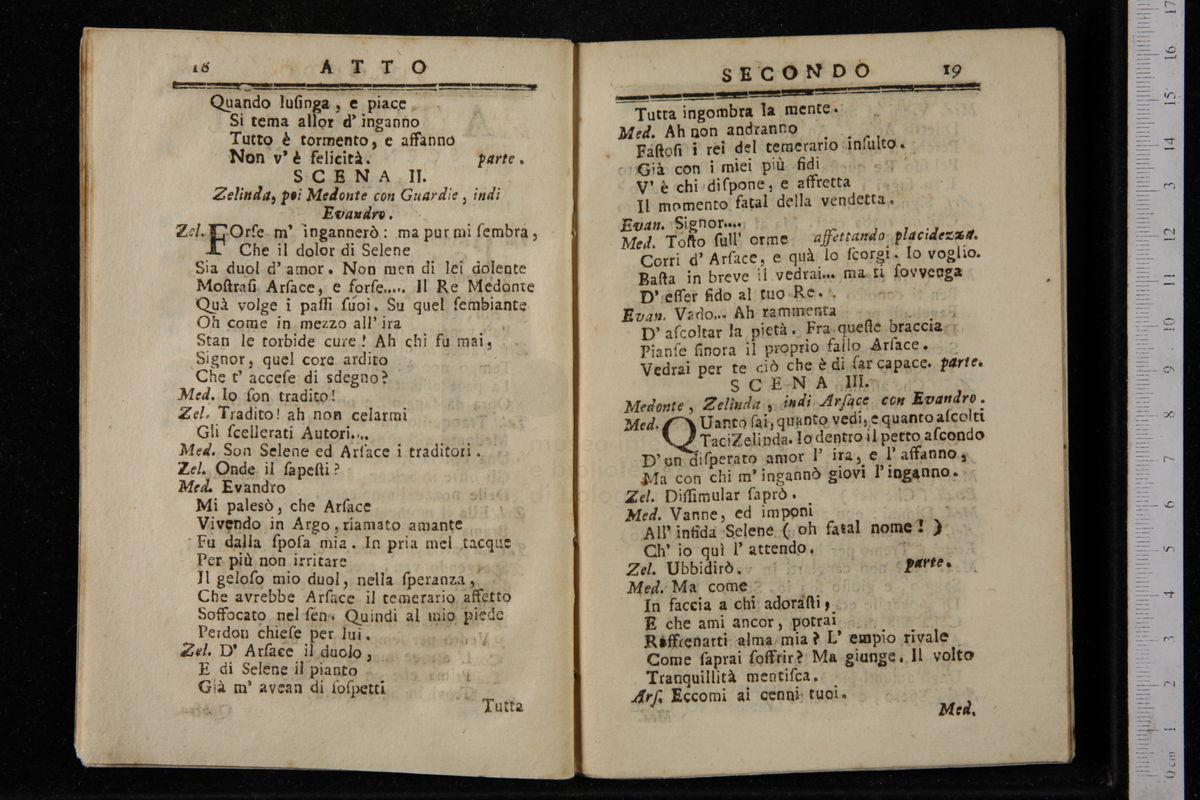 18 ATTO
Quando luſinga, e piace
Si tema allor d' inganno
Tutto è tormento, e affanno
Non v' è felicità. parte.
SCENA II.
Zelinda, poi Medonte con Guardie, indi
Evandro.
Zel. FOrſe m' ingannerò: ma pur mi ſembra,
Che il dolor di Selene
Sia duol d' amor. Non men di lei dolente
Moſtraſi Arſace, e forſe..... Il Re Medonte
Quà volge i paſſi ſuoi. Su quel ſembiante
Oh come in mezzo all' ira
Stan le torbide cure! Ah chi fu mai,
Signor, quel core ardito
Che t' acceſe di sdegno?
Med. Io ſon tradito!
Zel. Tradito! ah non celarmi
Gli ſcellerati Autori....
Med. Son Selene ed Arſace i traditori.
Zel. Onde il ſapeſti?
Med. Evandro
Mi palesò, che Arſace
Vivendo in Argo, riamato amante
Fu dalla ſpoſa mia. In pria mel tacque
Per più non irritare
Il geloſo mio duol, nella ſperanza,
Che avrebbe Arſace il temerario affetto
Soffocato nel ſen. Quindi al mio piede
Perdon chieſe per lui.
Zel. D' Arſace il duolo,
E di Selene il pianto
Già m' avean di ſoſpetti
Tutta
SECONDO 19
Tutta ingombra la mente.
Med. Ah non andranno
Faſtoſi i rei del temerario inſulto.
Già con i miei più fidi
V' è chi diſpone, e affretta
Il momento fatal della vendetta.
Evan. Signor....
Med. Toſto ſull' orme affettando placidezza.
Corri d' Arſace, e quà lo ſcorgi. Io voglio.
Baſta in breve il vedrai... ma ti ſovvenga
D' eſſer fido al tuo Re.
Evan. Vado... Ah rammenta
D' aſcoltar la pietà. Fra queſte braccia
Pianſe ſinora il proprio fallo Arſace.
Vedrai per te ciò che è di far capace. parte.
SCENA III.
Medonte, Zelinda, indi Arſace con Evandro.
Med. QUanto ſai, quanto vedi, e quanto aſcolti
Taci Zelinda. Io dentro il petto aſcondo
D' un diſperato amor l' ira, e l' affanno,
Ma con chi m' ingannò giovi l' inganno.
Zel. Diſſimular ſaprò.
Med. Vanne, ed imponi
All' infida Selene (oh fatal nome!)
Ch' io quì l' attendo.
Zel. Ubbidirò. parte.
Med. Ma come
In faccia a chi adoraſti,
E che ami ancor, potrai
Raffrenarti alma mia? L' empio rivale
Come ſaprai ſoffrir? Ma giunge. Il volto
Tranquillità mentiſca.
Arſ. Eccomi ai cenni tuoi.
Med.